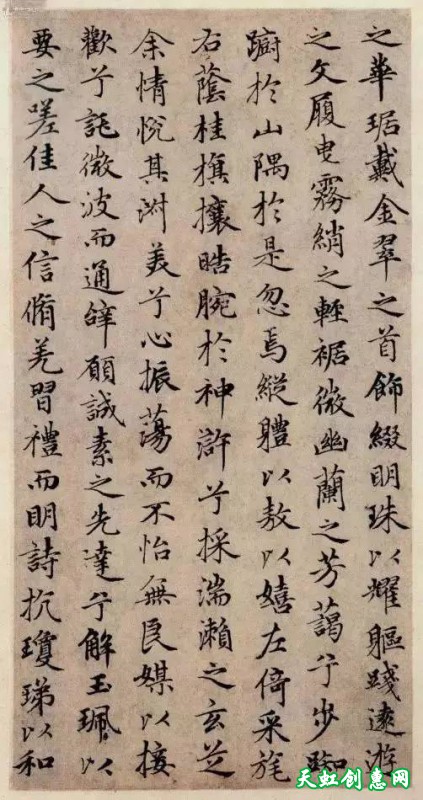 之華琚戴金翠之首飾綴明珠以耀軀踐遠游
之文履曳霧綃之輕裾微幽蘭之芳藹兮步踟
躕於山隅於是忽焉縱體以敖以嬉左倚采旄
右蔭桂旗攘晧腕於神滸兮採湍瀨之玄芝
余情悅其淑美兮心振蕩而不怡無良媒以接
歡兮託微波而通辭願誠素之先達兮解玉珮以
要之嗟佳人之信脩羌習禮而明詩抗瓊珶以和
天虹创惠网